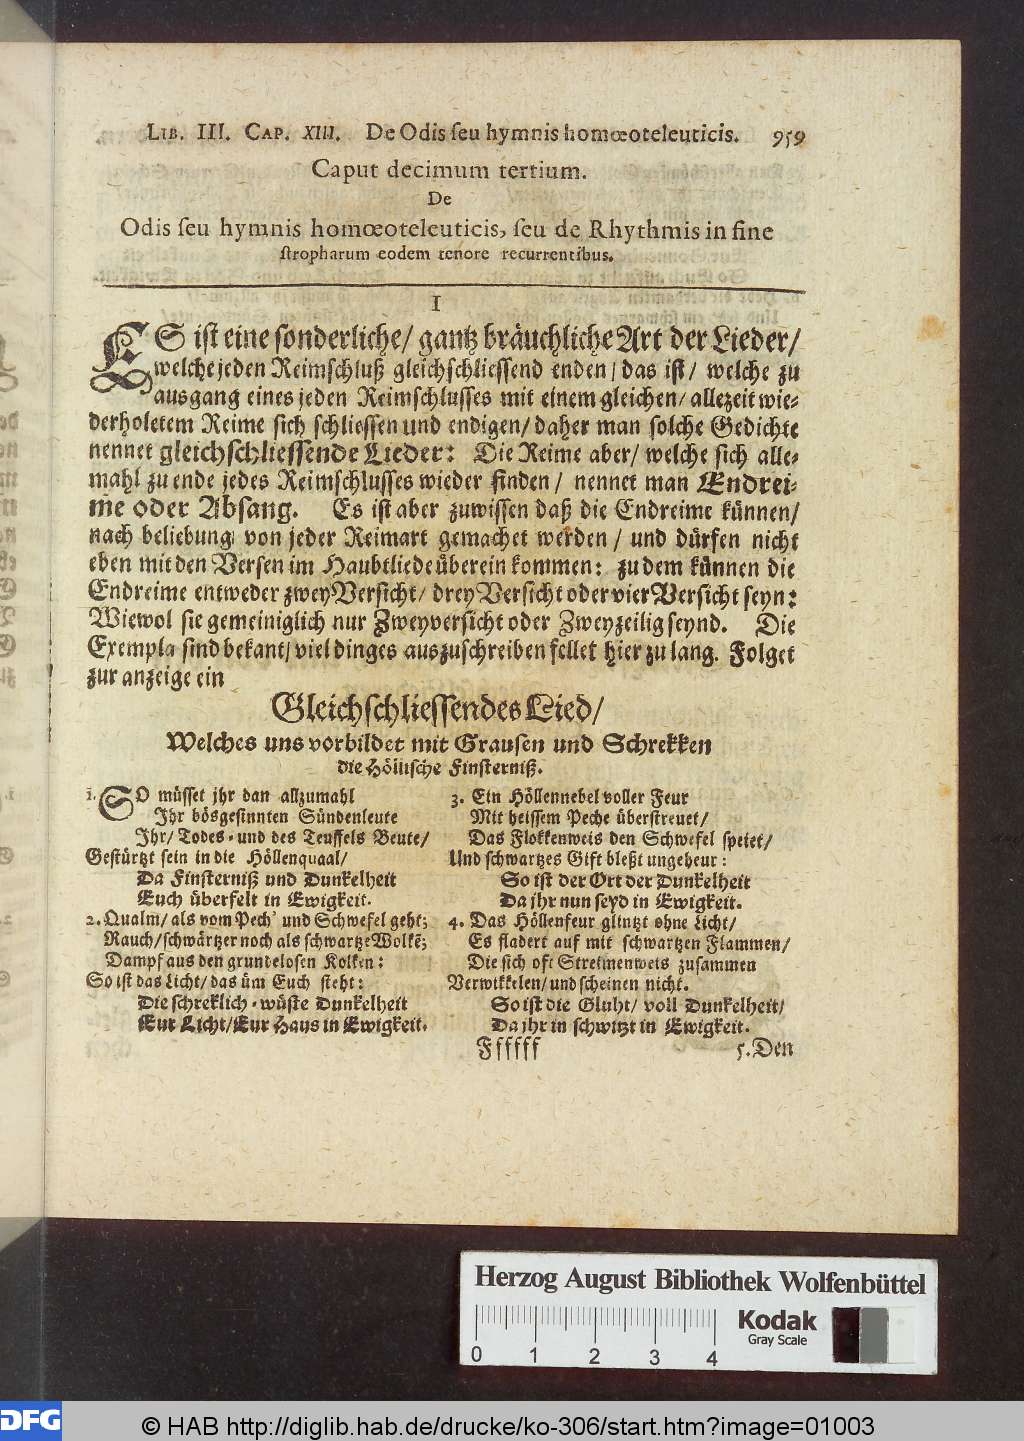 LIB. III. CAP. XIII. De Odis ſeu hymnis homœoteleuticis. 959
Caput decimum tertium.
De
Odis ſeu hymnis homœoteleuticis, ſeu de Rhythmis in fine
ſtropharum eodem tenore recurrentibus.
I
ES iſt eine ſonderliche/ gantz bräuchliche Art der Lieder/
welche jeden Reimſchluß gleichſchlieſſend enden/ das iſt/ welche zu
ausgang eines jeden Reimſchluſſes mit einem gleichen/ allezeit wie-
derholetem Reime ſich ſchlieſſen und endigen/ daher man ſolche Gedichte
nennet gleichſchlieſſende Lieder: Die Reime aber/ welche ſich alle-
mahl zu ende jedes Reimſchluſſes wieder finden/ nennet man Endrei-
me oder Abſang. Es iſt aber zuwiſſen daß die Endreime künnen/
nach beliebung von jeder Reimart gemachet werden/ und dürfen nicht
eben mit den Verſen im Haubtliede überein kommen: zu dem künnen die
Endreime entweder zwey Verſicht/ drey Verſicht oder vier Verſicht ſeyn:
Wiewol ſie gemeiniglich nur Zweyverſicht oder Zweyzeilig ſeynd. Die
Exempla ſind bekant/ viel dinges auszuſchreiben fellet hier zu lang. Folget
zur anzeige ein
Gleichſchlieſſendes Lied/
Welches uns vorbildet mit Grauſen und Schrekken
die Hölliſche Finſterniß.
1. SO müſſet jhr dan allzumahl
Ihr bösgeſinnten Sündenleute
Ihr/ Todes- und des Teuffels Beute/
Geſtürtzt ſein in die Höllenquaal/
Da Finſterniß und Dunkelheit
Euch überfelt in Ewigkeit.
2. Qualm/ als vom Pech' und Schwefel geht;
Rauch/ ſchwärtzer noch als ſchwartze Wolkẽ;
Dampf aus den grundeloſen Kolken:
So iſt das Licht/ das üm Euch ſteht:
Die ſchreklich-wüſte Dunkelheit
Eur Licht/ Eur Haus in Ewigkeit.
3. Ein Höllennebel voller Feur
Mit heiſſem Peche überſtreuet/
Das Flokkenweis den Schwefel ſpeiet/
Und ſchwartzes Gift bleßt ungeheur:
So iſt der Ort der Dunkelheit
Da jhr nun ſeyd in Ewigkeit.
4. Das Höllenfeur glintzt ohne Licht/
Es fladert auf mit ſchwartzen Flammen/
Die ſich oft Streimenweis zuſammen
Verwikkelen/ und ſcheinen nicht.
So iſt die Gluht/ voll Dunkelheit/
Da jhr in ſchwitzt in Ewigkeit.
Ffffff
5. Den
Herzog August Bibliothek Wolfenbüttel
0 1 2 3 4
Kodak
Gray Scale
DFG
© HAB http://diglib.hab.de/drucke/ko-306/start.htm?image=01003